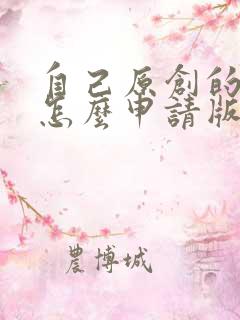 自己原創的
怎麼申請版
農博城